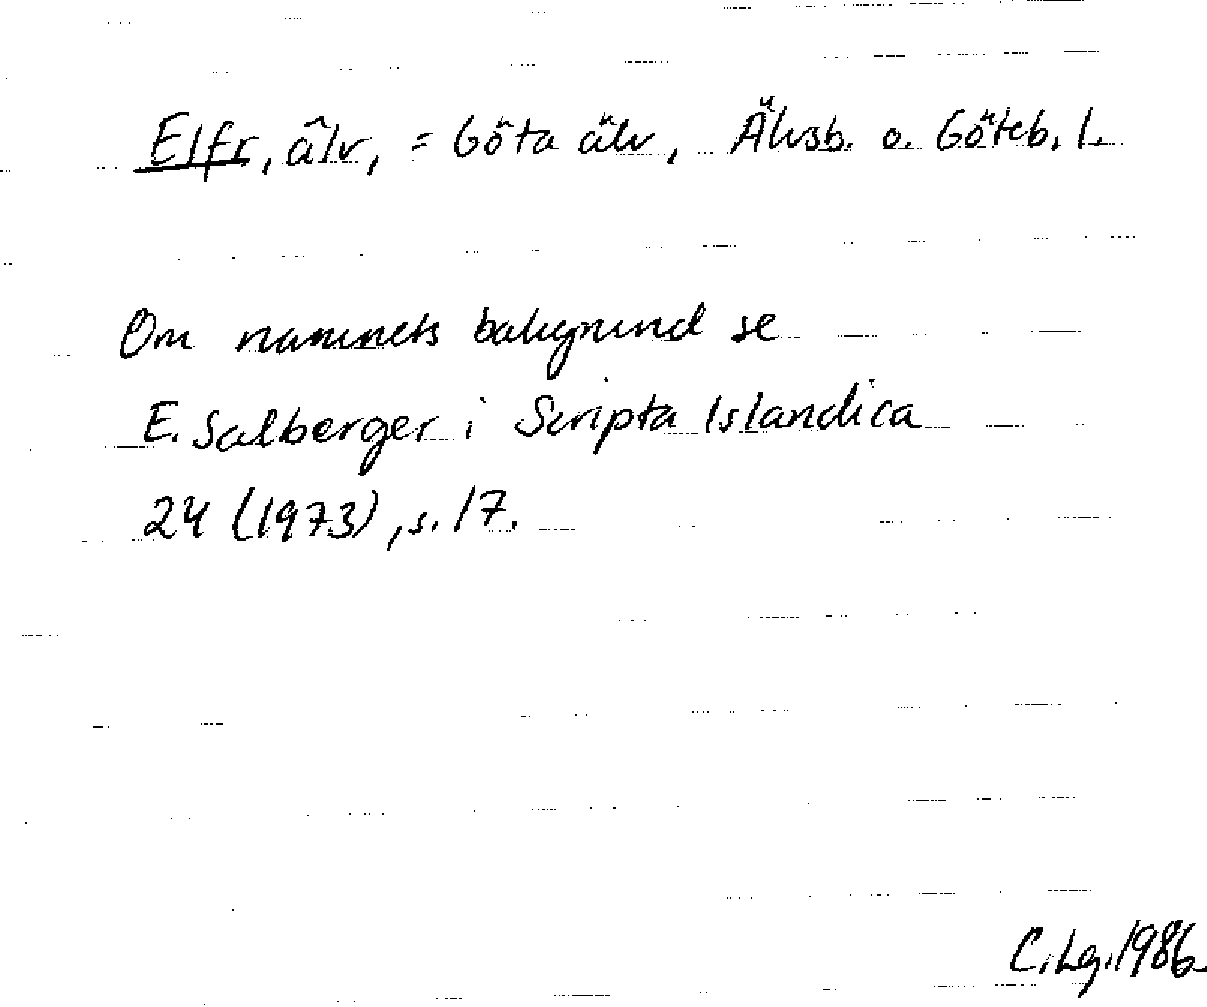 Elfr, älv, = Göta älv, Älvsb. o. Göteb. l.
Om namnets bakgrund se
E. Salberger i Scripta Islandica
24 (1973), s. 17.
C. Lg. 1986